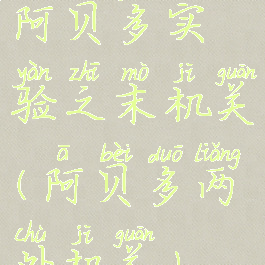 阿贝多实
yàn zhī mò jī guān
验之末机关
ā bèi duō liǎng
(阿贝多两
chù jī guān
处机关)